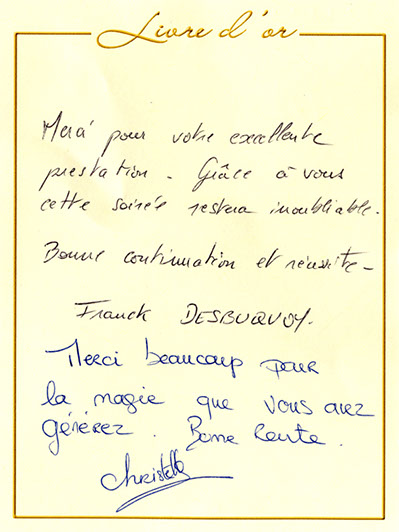 Livre d'or
Merci pour votre excellente
prestation - Grâce à vous
cette soirée restera inoubliable.
Bonne continuation et réussite -
Franck DESBUQUOY.
Merci beaucoup pour
la magie que vous avez
générez. Bonne route.
Christelle